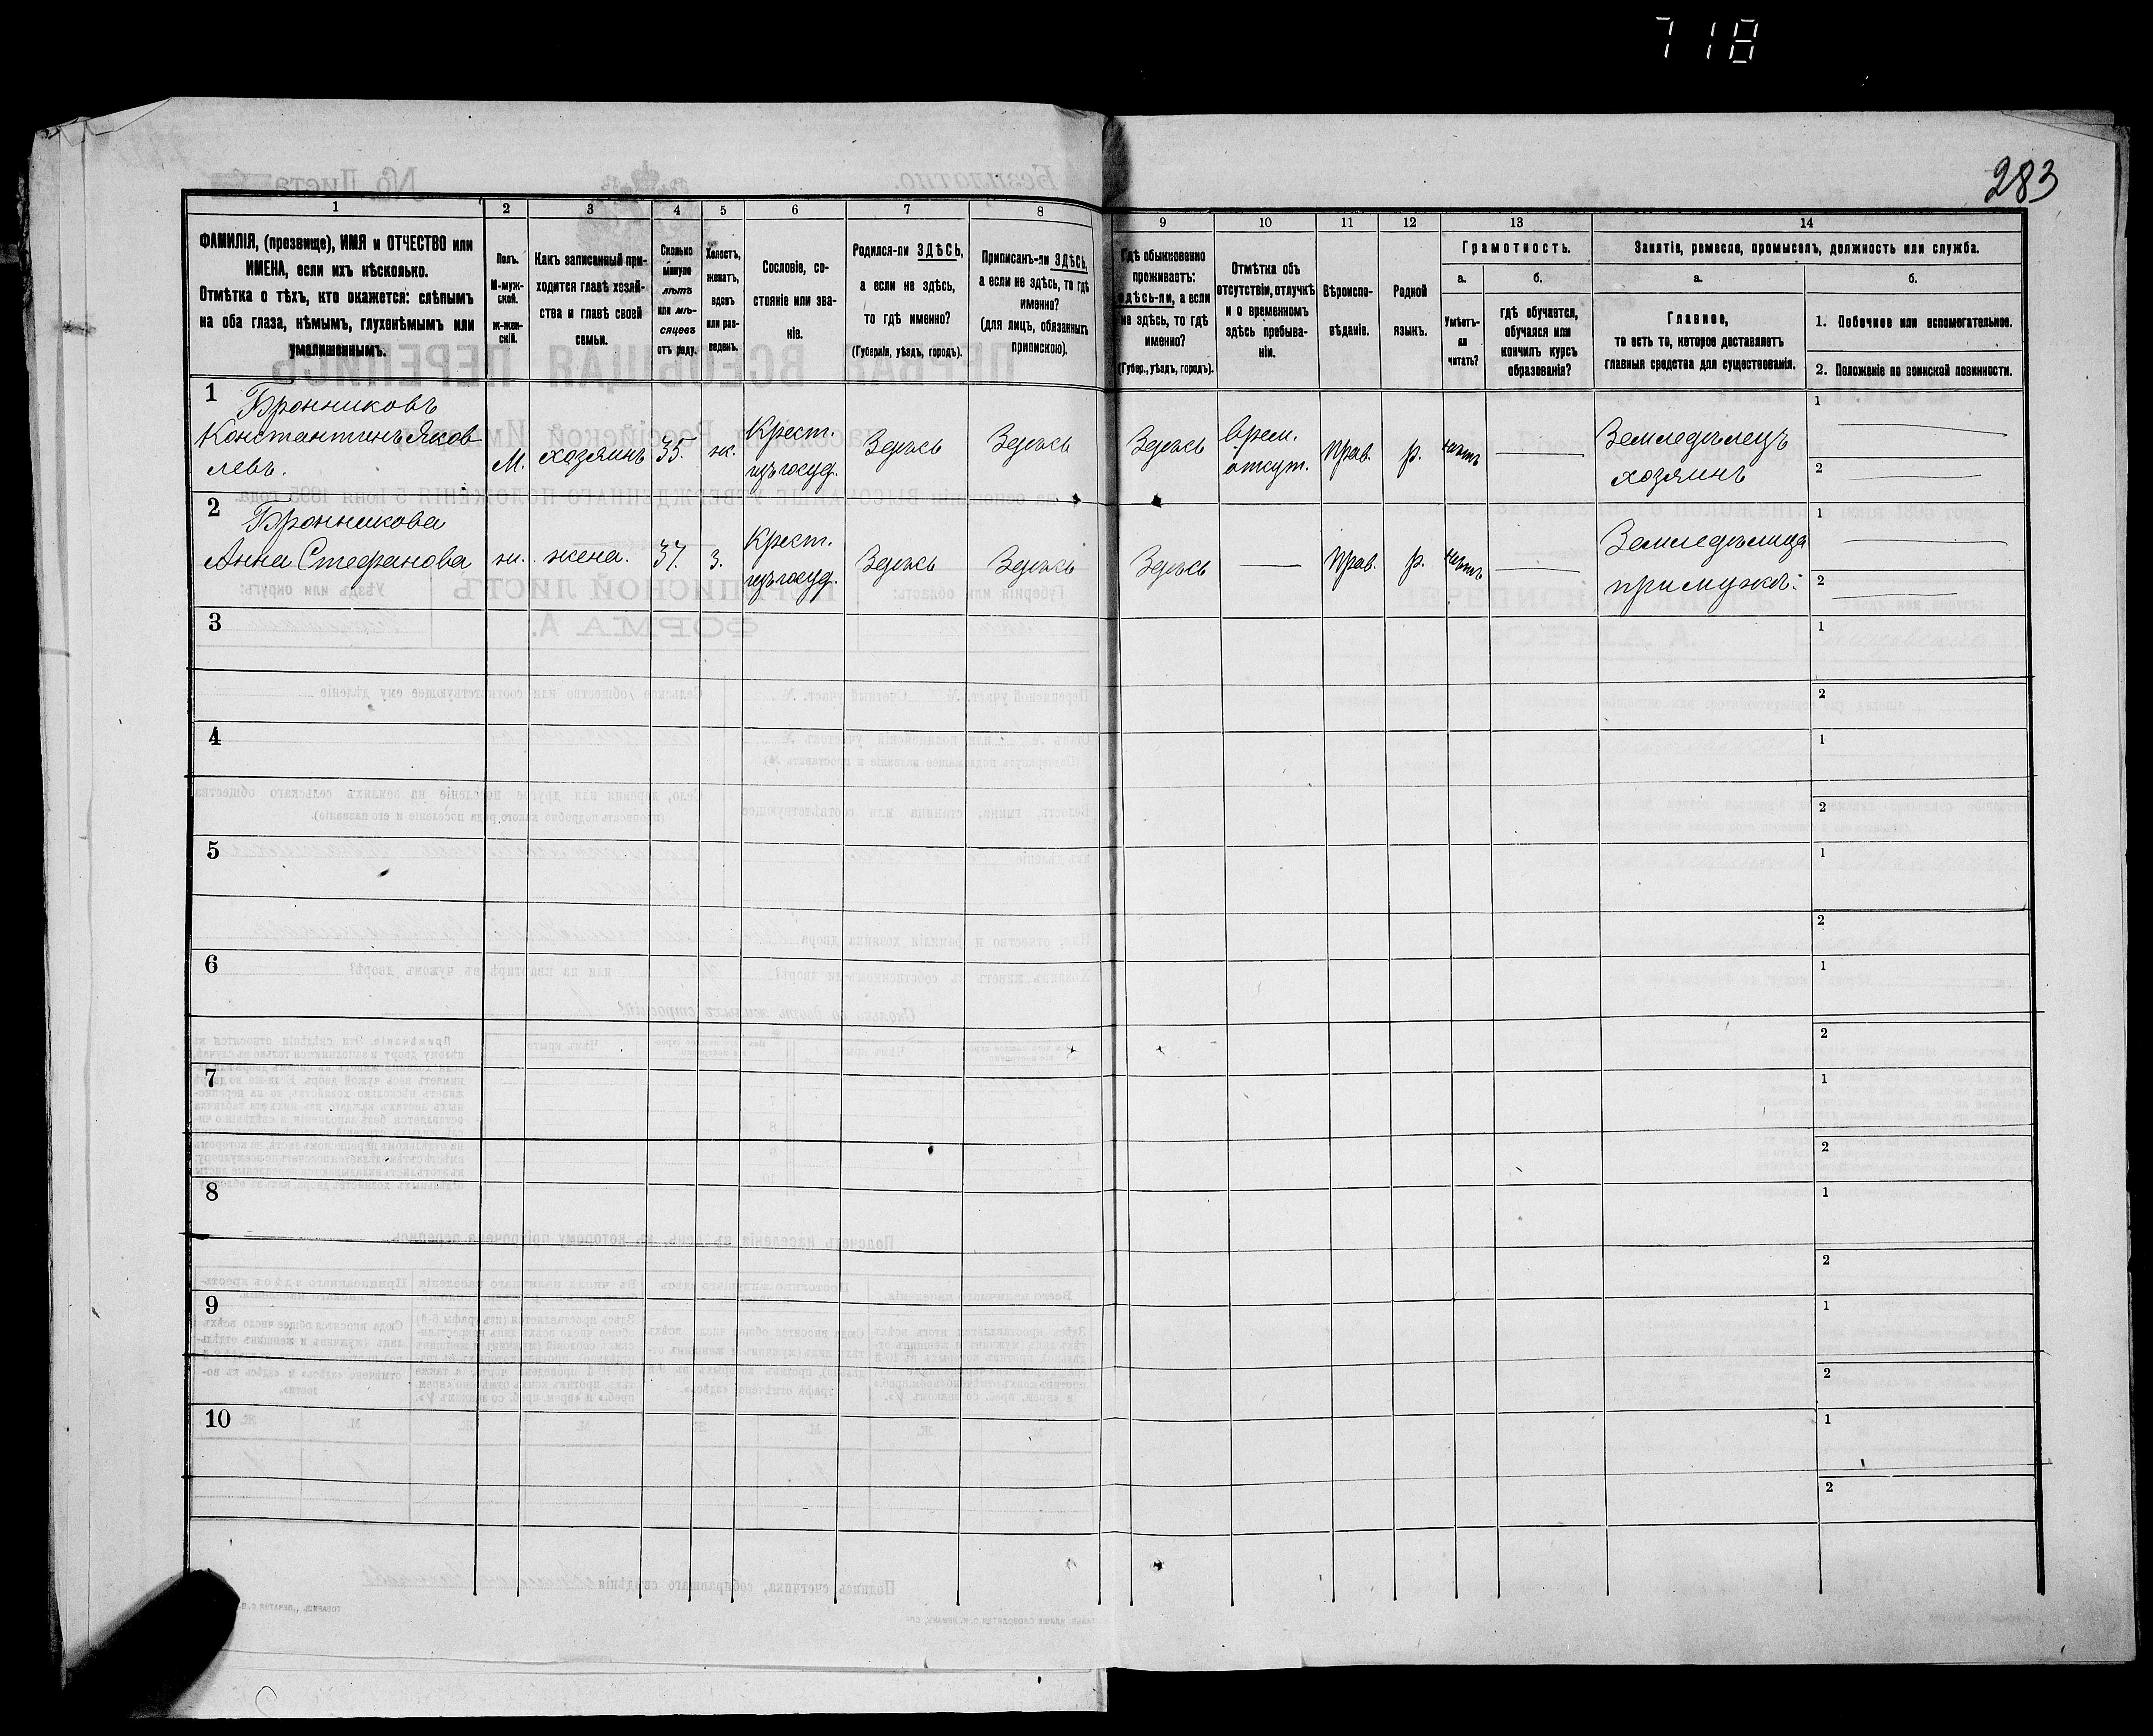 718
283
1
2
3
4
5
6
7
8
9
10
11
12
13
14
ФАМИЛІЯ, (прозвище), ИМЯ и ОТЧЕСТВО или
ИМЕНА, если ихъ нѣсколько.
Отмѣтка о тѣхъ, кто окажется: слѣпымъ
на оба глаза, нѣмымъ, глухонѣмымъ или
умалишеннымъ.
Полъ.
М-муж-
ской.
ж-жен-
скій.
Какъ записанный при-
ходится главѣ хозяй-
ства и главѣ своей
семьи.
Сколько
минуло
лѣтъ
или мѣ-
сяцевъ
отъ роду.
Холостъ,
женатъ,
вдовъ
или раз-
веденъ.
Сословіе, со-
стояніе или зва-
ніе.
Родился-ли ЗДѢСЬ,
а если не здѣсь,
то гдѣ именно?
(Губернія, уѣздъ, городъ).
Приписанъ-ли ЗДѢСЬ,
а если не здѣсь, то гдѣ
именно?
(для лицъ, обязанныхъ
припискою).
Гдѣ обыкновенно
проживаетъ:
здѣсь-ли, а если
не здѣсь, то гдѣ
именно?
(Губер., уѣздъ, городъ).
Отмѣтка объ
отсутствіи, отлучкѣ
и о временномъ
здѣсь пребыва-
ніи.
Вѣроиспо-
вѣданіе.
Родной
языкъ.
Грамотность.
а.
Умѣетъ-
ли
читать?
б.
гдѣ обучается,
обучался или
кончилъ курсъ
образованія?
Занятіе, ремесло, промыселъ, должность или служба.
а.
Главное,
то есть то, которое доставляетъ
главныя средства для существованія.
б.
1. Побочное или вспомогательное.
2. Положеніе по воинской повинности.
1
Бронниковъ
Константинъ Яков-
левъ.
М.
хозяинъ
35.
ж.
Крест.
изъ госуд.
Здѣсь
Здѣсь
Здѣсь
врем.
отсут.
прав.
р.
нѣтъ
Земледѣлецъ
хозяинъ
1
2
2
Бронникова
Анна Стефанова
ж.
жена.
37.
з.
Крест.
изъ госуд.
Здѣсь
Здѣсь
Здѣсь
прав.
р.
нѣтъ
Земледѣлица
при мужѣ.
1
2
3
1
2
4
1
2
5
1
2
6
1
2
7
1
2
8
1
2
9
1
2
10
1
2